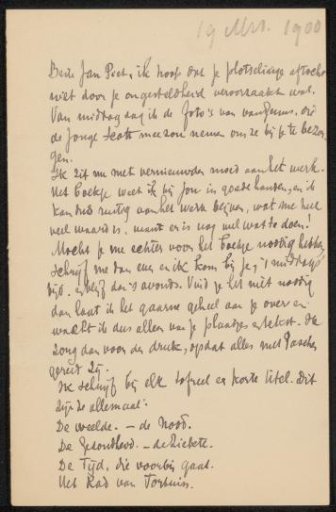 19 Mrt. 1900
Beste Jan Piet, ik hoop dat je plotselinge aftocht
niet door je ongesteldheid veroorzaakt was.
Van middag zag ik de foto's van van, die
de jonge Scott mee zou nemen om ze bij je te bezor
gen.
Ik zit nu met vernieuwden moed aan het werk.
Het boekje weet ik bij jou in goede handen, en ik
kan dus rustig aan het werk blijven, wat me heel
veel waard is, want er is nog veel wat te doen!
Mocht je me echter voor het boekje noodig hebben
schrijf me dan eens en ik kom bij je, 's middags
tijd. en blijf dan 's avonds. Vind je het niet noodig
dan laat ik het gaarne geheel aan je over en
wacht ik dus alleen van je plaatjes en tekst. Ik
zorg dan voor den druk, opdat alles met Paschen
gereed zij.
Ik schrijf bij elk tafreel en korte titel. Dit
zijn ze allemaal:
De weelde. - de Nood.
De Gezondheid. - de Ziekte.
De Tijd, die voorbij gaat.
Het Rad van Fortuin.